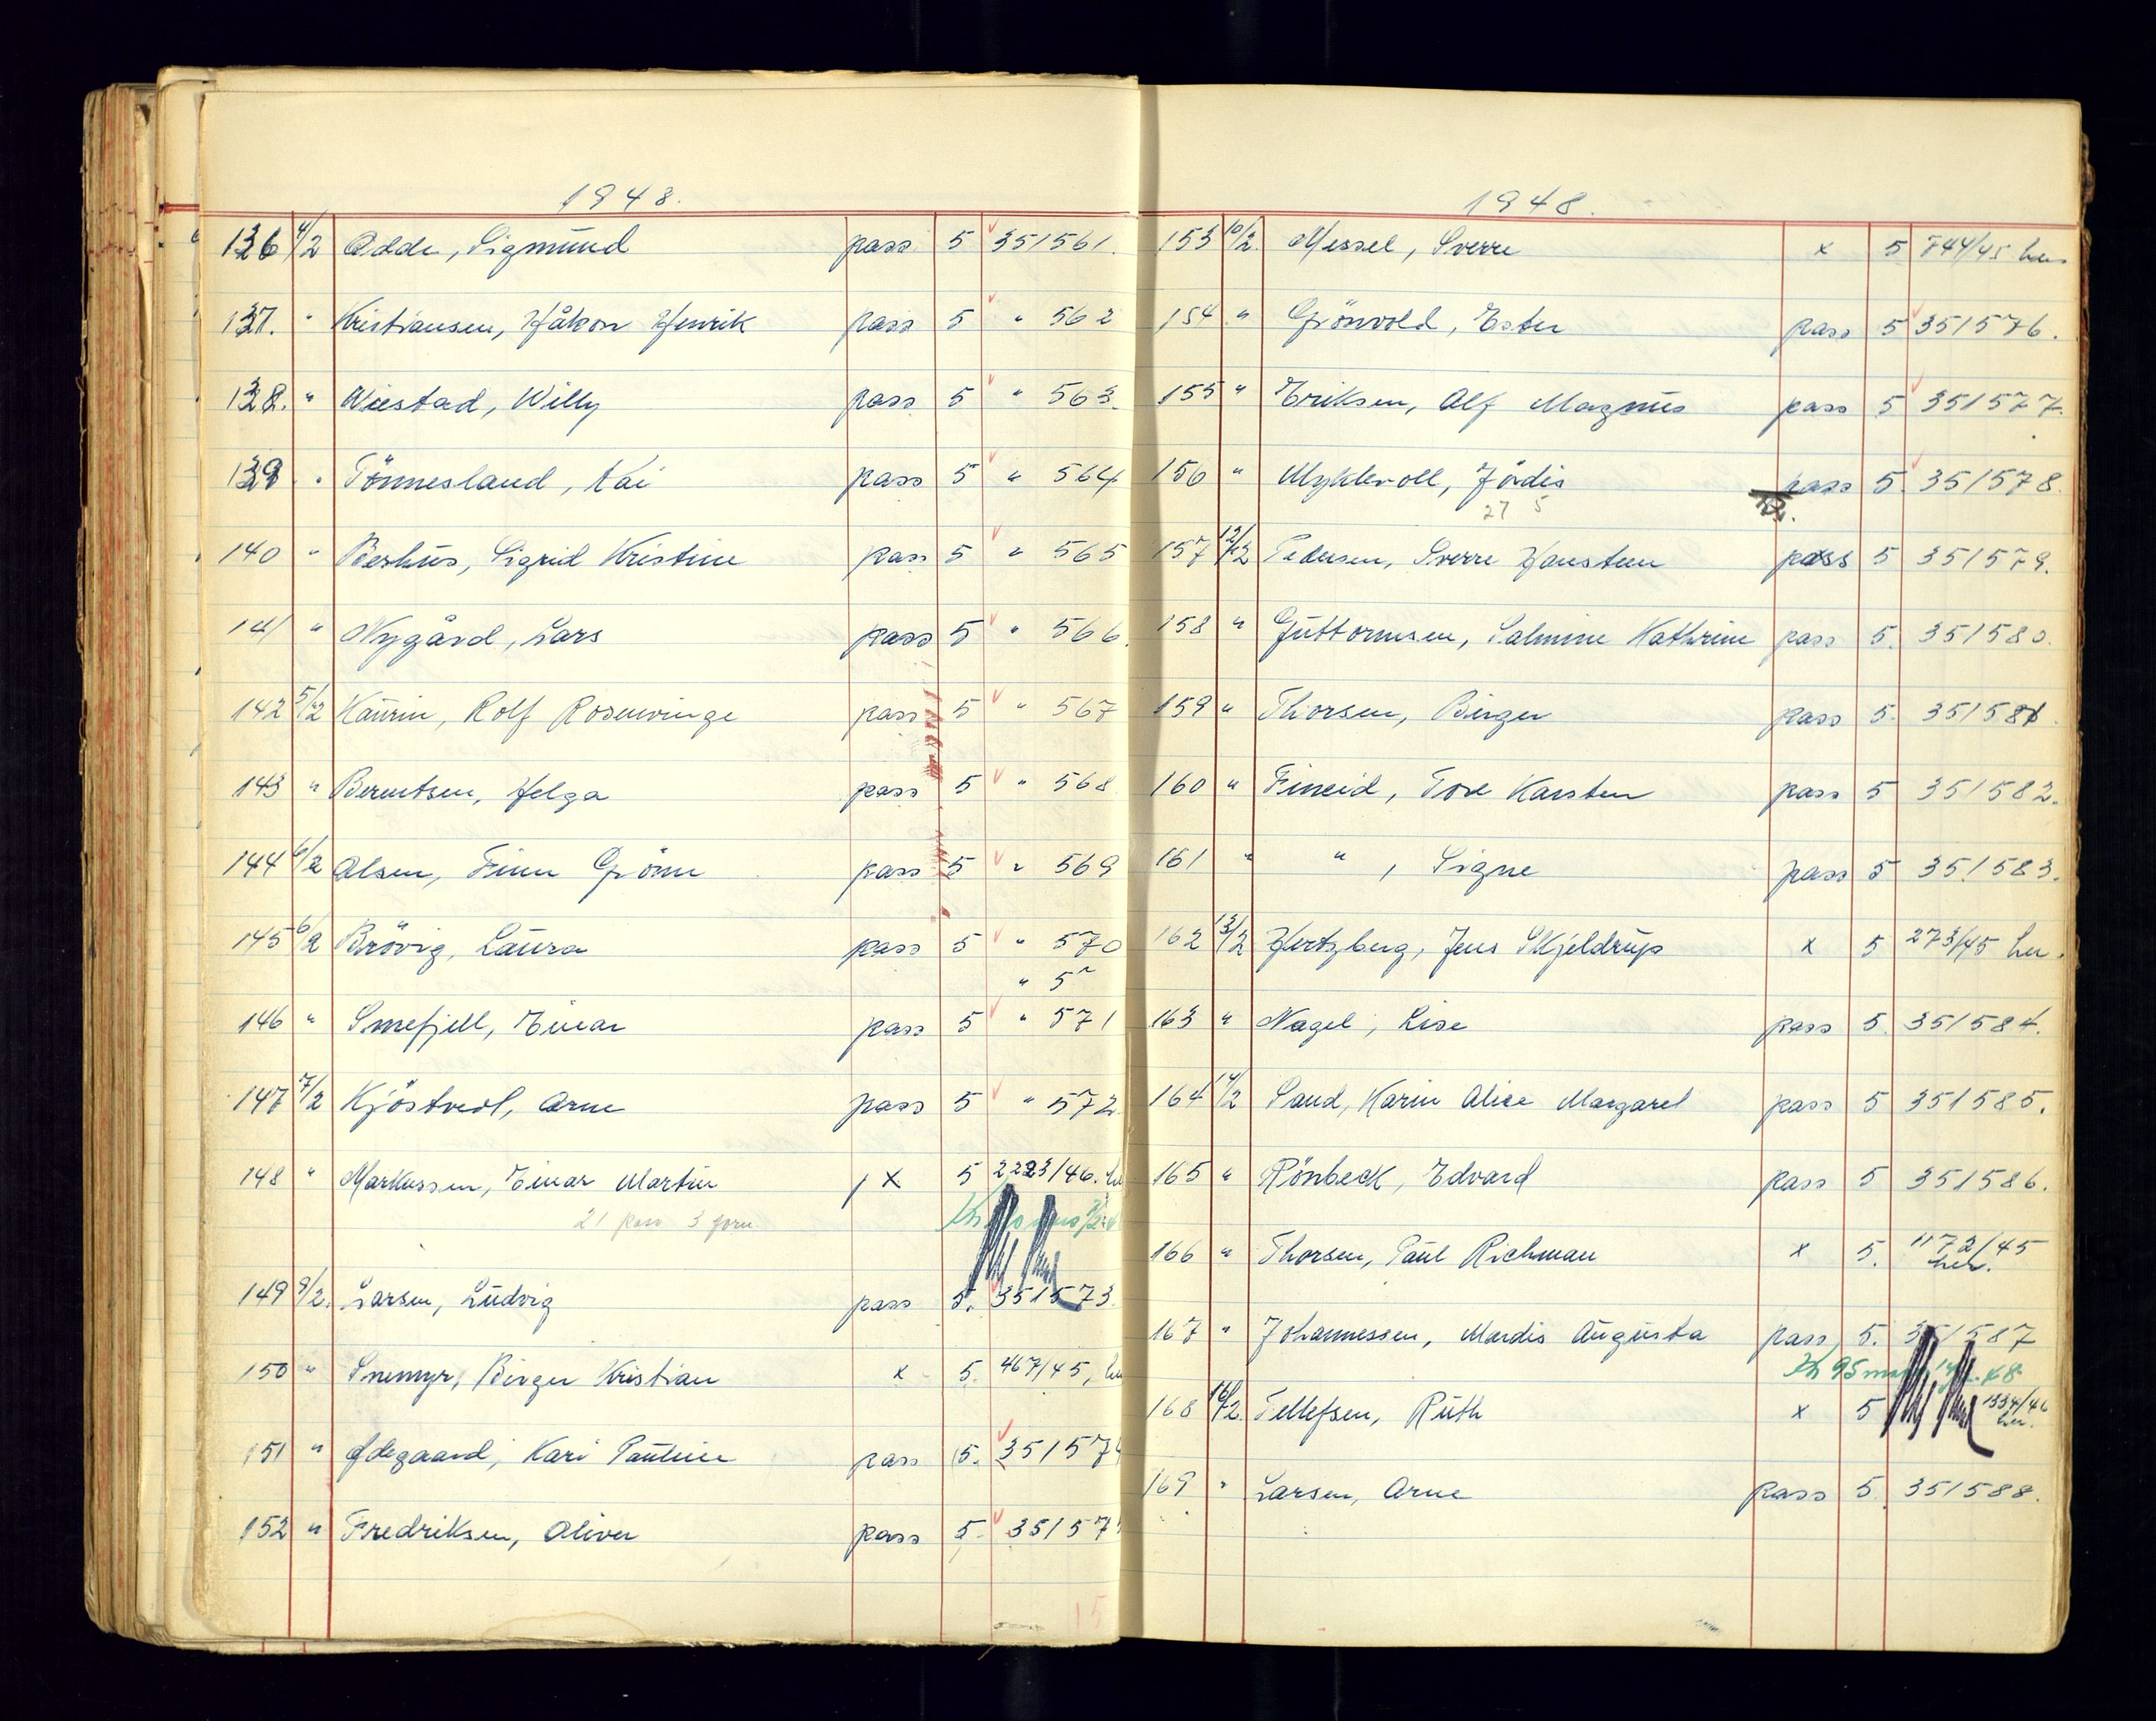 1948.
136 4/2 Odde, Sigmund pass 5 351561.
137. " Kristiansen, Håkon Henrik pass 5 " 562
138. " Wiestad, Willy pass 5 " 563.
139 " Tönnesland, Kai pass 5 " 564
140 " Berhus, Sigrid Kristine pass 5 " 565
141 " Nygård, Lars pass 5 " 566.
142 5/2 Kaurin, Rolf Rosenvinge pass 5 " 567
143 " Berentsen, Helga pass 5 " 568
144 6/2 Olsen, Finn Grönn pass 5 " 569
145 6/2 Brövig, Laura pass 5 " 570
" 5
146 " Smefjell, Einar pass 5 " 571
147 7/2 Kjöstvedt, Arne pass 5 " 572
148 " Markussen, Einar Martin x 5 2223/46.
21 pass 3 forn.
149 9/2. Larsen, Ludvig pass 5. 351573.
150 " Snemyr, Birger Kristian x 5. 467/45,
151 " Ødegaard, Kari Pauline pass 5. 351574
152 " Fredriksen, Oliver pass 5. 35157
15
1948.
153 10/2. Messel, Sverre x 5 744/45 her
154 " Grönvold, Ester pass 5 351576.
155 " Eriksen, Alf Magnus pass 5 351577.
156 " Myklevoll, Jördis pass 5. 351578.
27 5
157 12/2 Pedersen, Sverre Hansteen pass 5 351579.
158 " Guttormsen, Salmine Kathrine pass 5. 351580.
159 " Thorsen, Birger pass 5. 351581.
160 " Fineid, Tore Karsten pass 5 351582.
161 " " , Signe pass 5 351583.
162 13/2 Hertzberg, Jens Skjeldrup x 5 273/45 her.
163 " Nagel, Lise pass 5. 351584.
164 14/2 Sand, Karin Alice Margaret pass 5 351585.
165 " Rönbeck, Edvard pass 5 351586.
166 " Thorsen, Paul Richman x 5. 1172/45
her.
167 " Johannessen, Mardis Augusta pass, 5. 351587
Kr 95
168 16/2. Tellefsen, Ruth x 5 1334/46
her.
169 " Larsen, Arne pass 5. 351588.